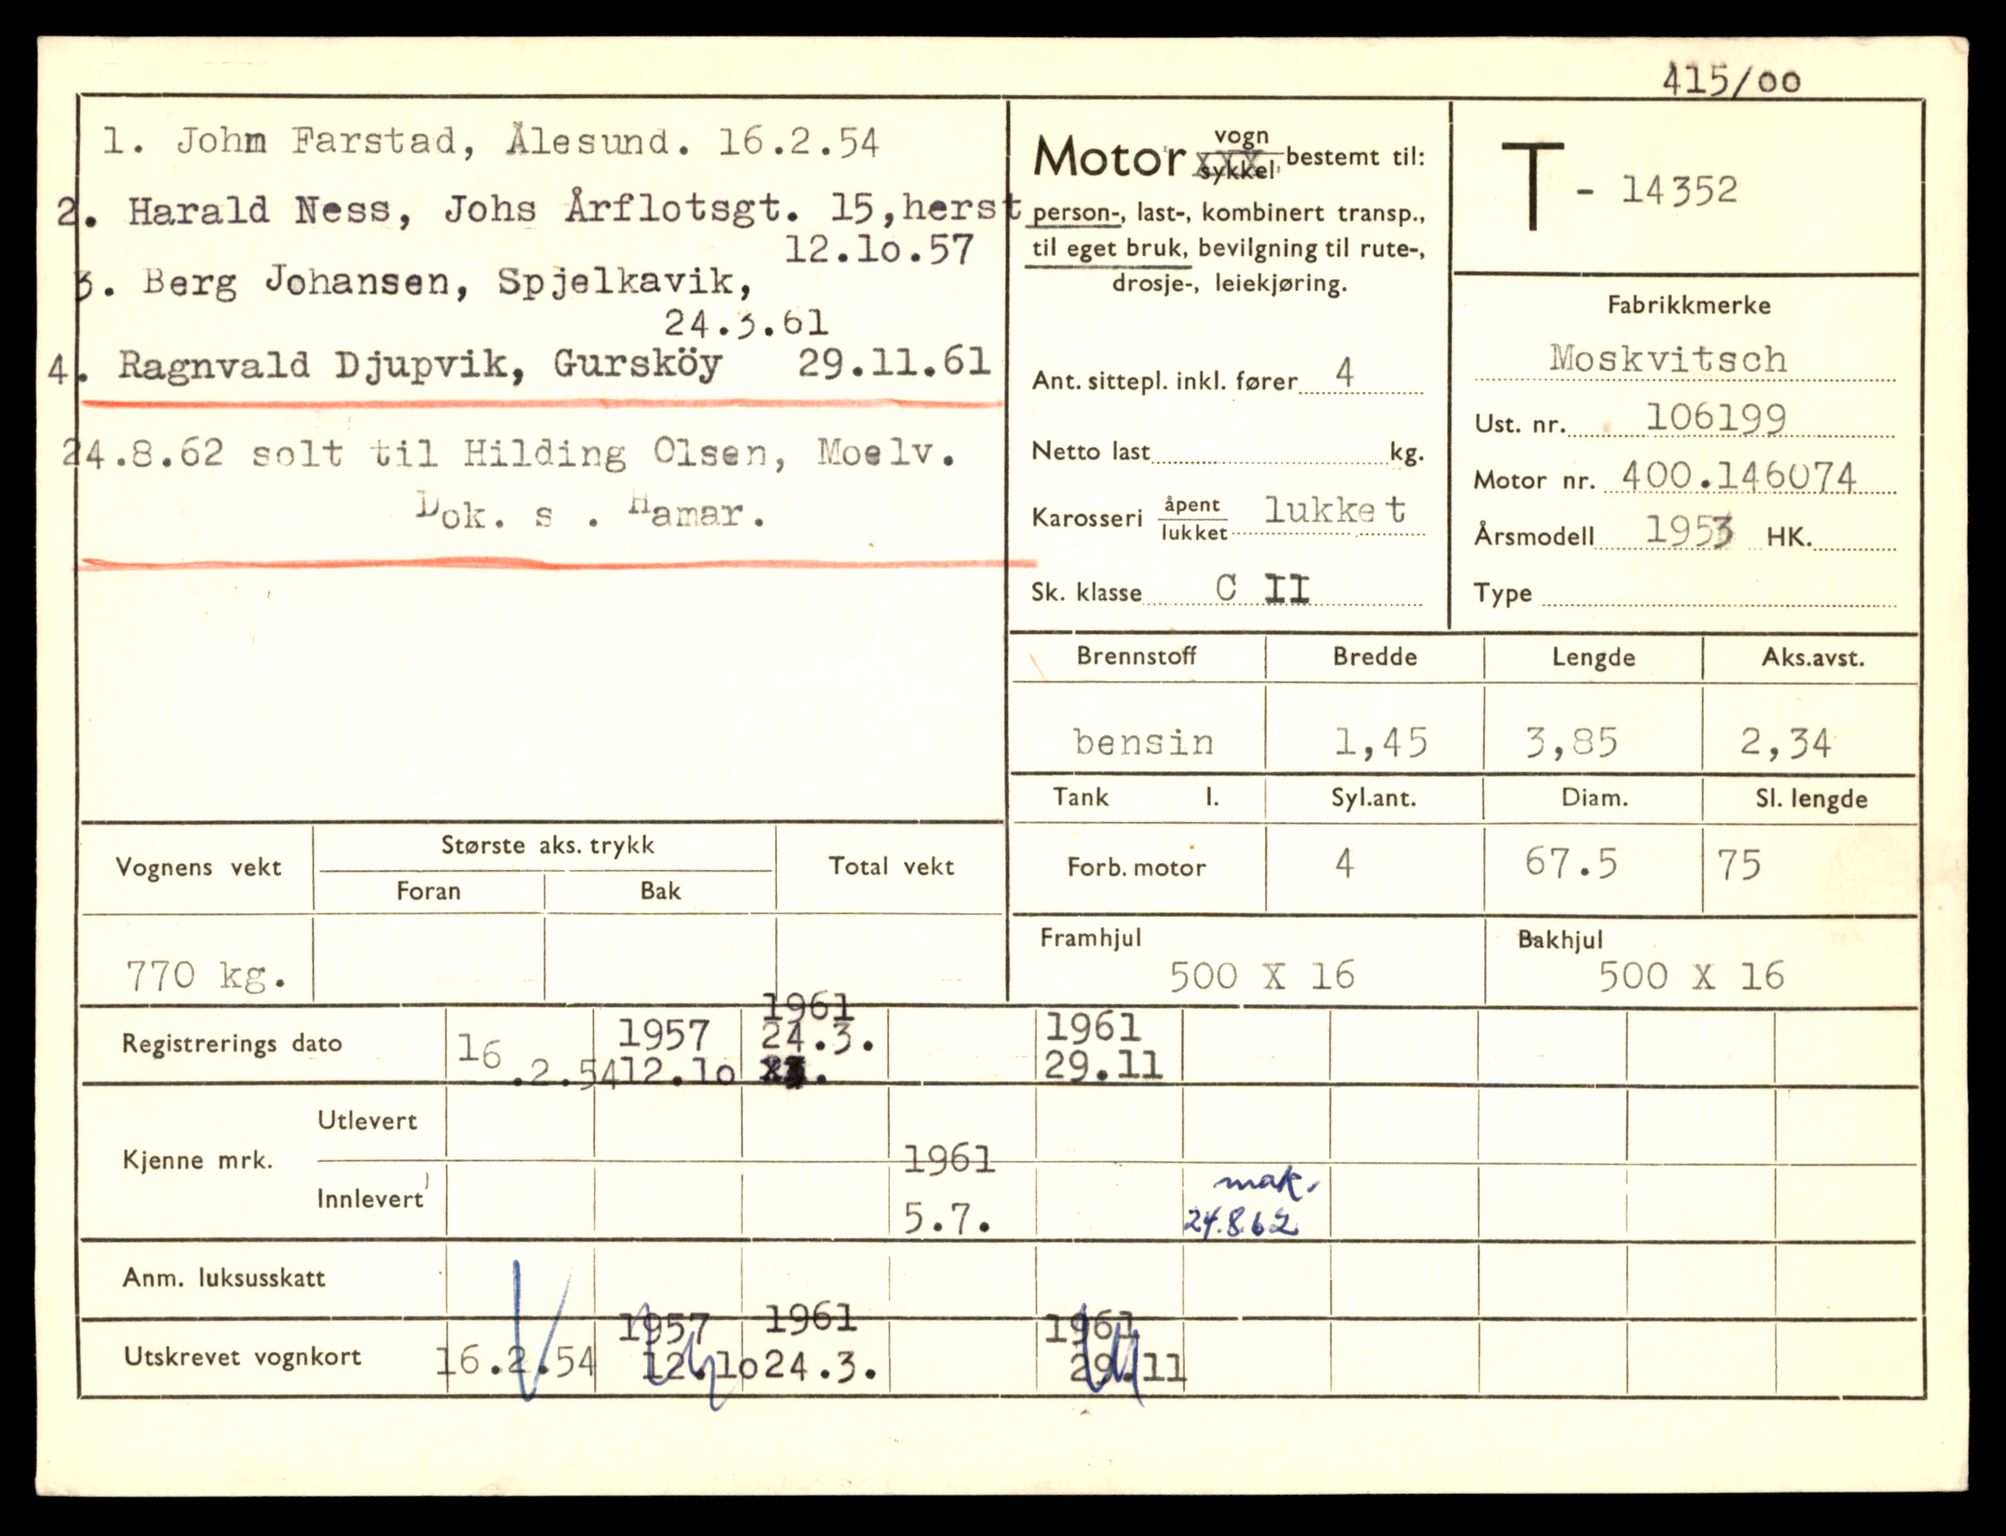 415/oo
1. Johm Farstad, Ålesund. 16.2.54
2. Harald Ness, Johs Årflotsgt. 15,herst
12.lo.57
3. Berg Johansen, Spjelkavik,
24.3.61
4. Ragnvald Djupvik, Gursköy 29.11.61
24.8.62 solt til Hilding Olsen, Moelv.
Dok. s . Hamar.
Motor vogn/sykkel bestemt til:
person-, last-, kombinert transp.,
til eget bruk, bevilgning til rute-,
drosje-, leiekjøring.
Ant. sittepl. inkl. fører 4
Netto last kg.
Karosseri åpent/lukket lukket
Sk. klasse C II
T - 14352
Fabrikkmerke
Moskvitsch
Ust. nr. 106199
Motor nr. 400.146074
Årsmodell 1953 HK.
Type
Brennstoff Bredde Lengde Aks.avst.
bensin 1,45 3,85 2,34
Tank l. Syl.ant. Diam. Sl. lengde
Forb. motor 4 67.5 75
Framhjul Bakhjul
500 X 16 500 X 16
Vognens vekt Største aks. trykk Total vekt
Foran Bak
770 kg.
Registrerings dato 16.2.54 1957 12.lo 1961 24.3. 1961 29.11
Kjenne mrk. Utlevert
Innlevert 1961 5.7. mak. 24.8.62
Anm. luksusskatt
Utskrevet vognkort 16.2.54 1957 12.lo 1961 24.3. 1961 29.11